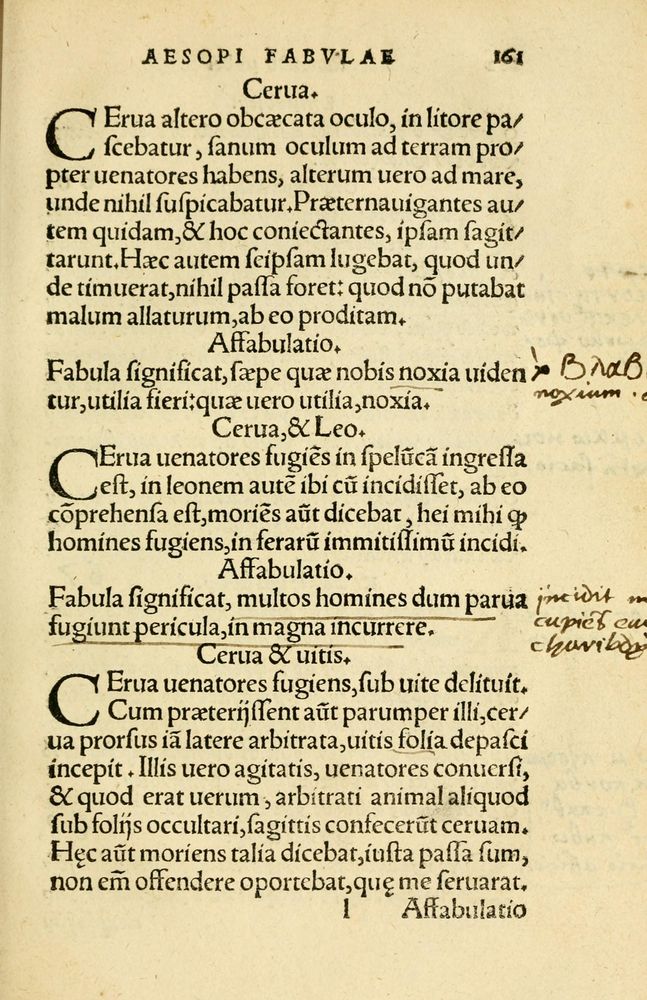 AESOPI FABVLAE 161
Cerua.
CErua altero obcæcata oculo, in litore pa/
ſcebatur, ſanum oculum ad terram pro/
pter uenatores habens, alterum uero ad mare,
unde nihil ſuſpicabatur. Præternauigantes au/
tem quidam, & hoc coniectantes, ipſam ſagit/
tarunt. Hæc autem ſeipſam lugebat, quod un/
de timuerat, nihil paſſa foret: quod nõ putabat
malum allaturum, ab eo proditam.
Affabulatio.
Fabula ſignificat, ſæpe quæ nobis noxia uiden
tur, utilia fieri: quæ uero utilia, noxia.
βλαβ
noxium.
Cerua, & Leo.
CErua uenatores fugiẽs in ſpelũcã ingreſſa
eſt, in leonem autẽ ibi cũ incidiſſet, ab eo
cõprehenſa eſt, moriẽs aũt dicebat, hei mihi ꝙ
homines fugiens, in ferarũ immitiſſimũ incidi.
Affabulatio.
Fabula ſignificat, multos homines dum parua
fugiunt pericula, in magna incurrere.
incidit
cupiẽs
Cerua & uitis.
CErua uenatores fugiens, ſub uite delituit.
Cum præterijſſent aũt parumper illi, cer/
ua prorſus iã latere arbitrata, uitis folia depaſci
incepit. Illis uero agitatis, uenatores conuerſi,
& quod erat uerum, arbitrati animal aliquod
ſub folijs occultari, ſagittis confecerũt ceruam.
Hęc aũt moriens talia dicebat, iuſta paſſa ſum,
non em̃ offendere oportebat, quę me ſeruarat.
l Affabulatio